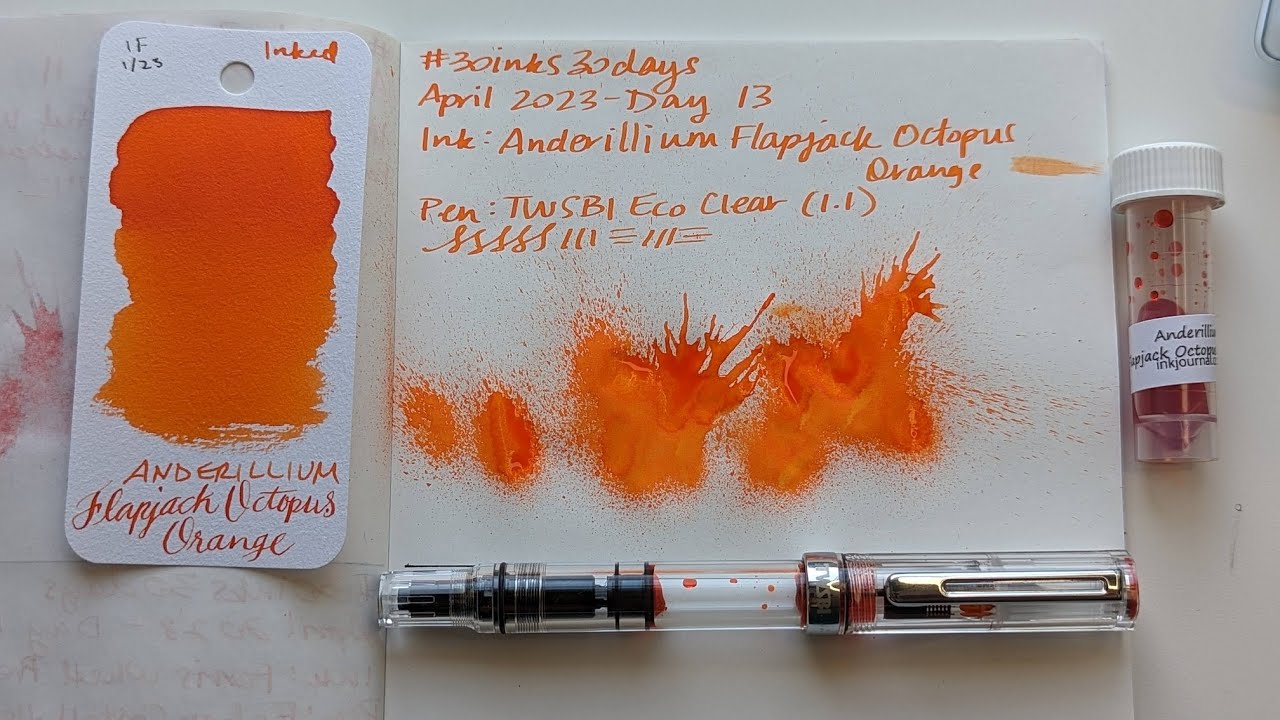 1F
1/23
Inked
ANDERILLIUM
Flapjack Octopus
Orange
#30inks30days
April 2023-Day 13
Ink: Anderillium Flapjack Octopus
Orange
Pen: TWSBI Eco Clear (1.1)
Anderilliu
apjack Octopu
inkjournal.c
TWSB